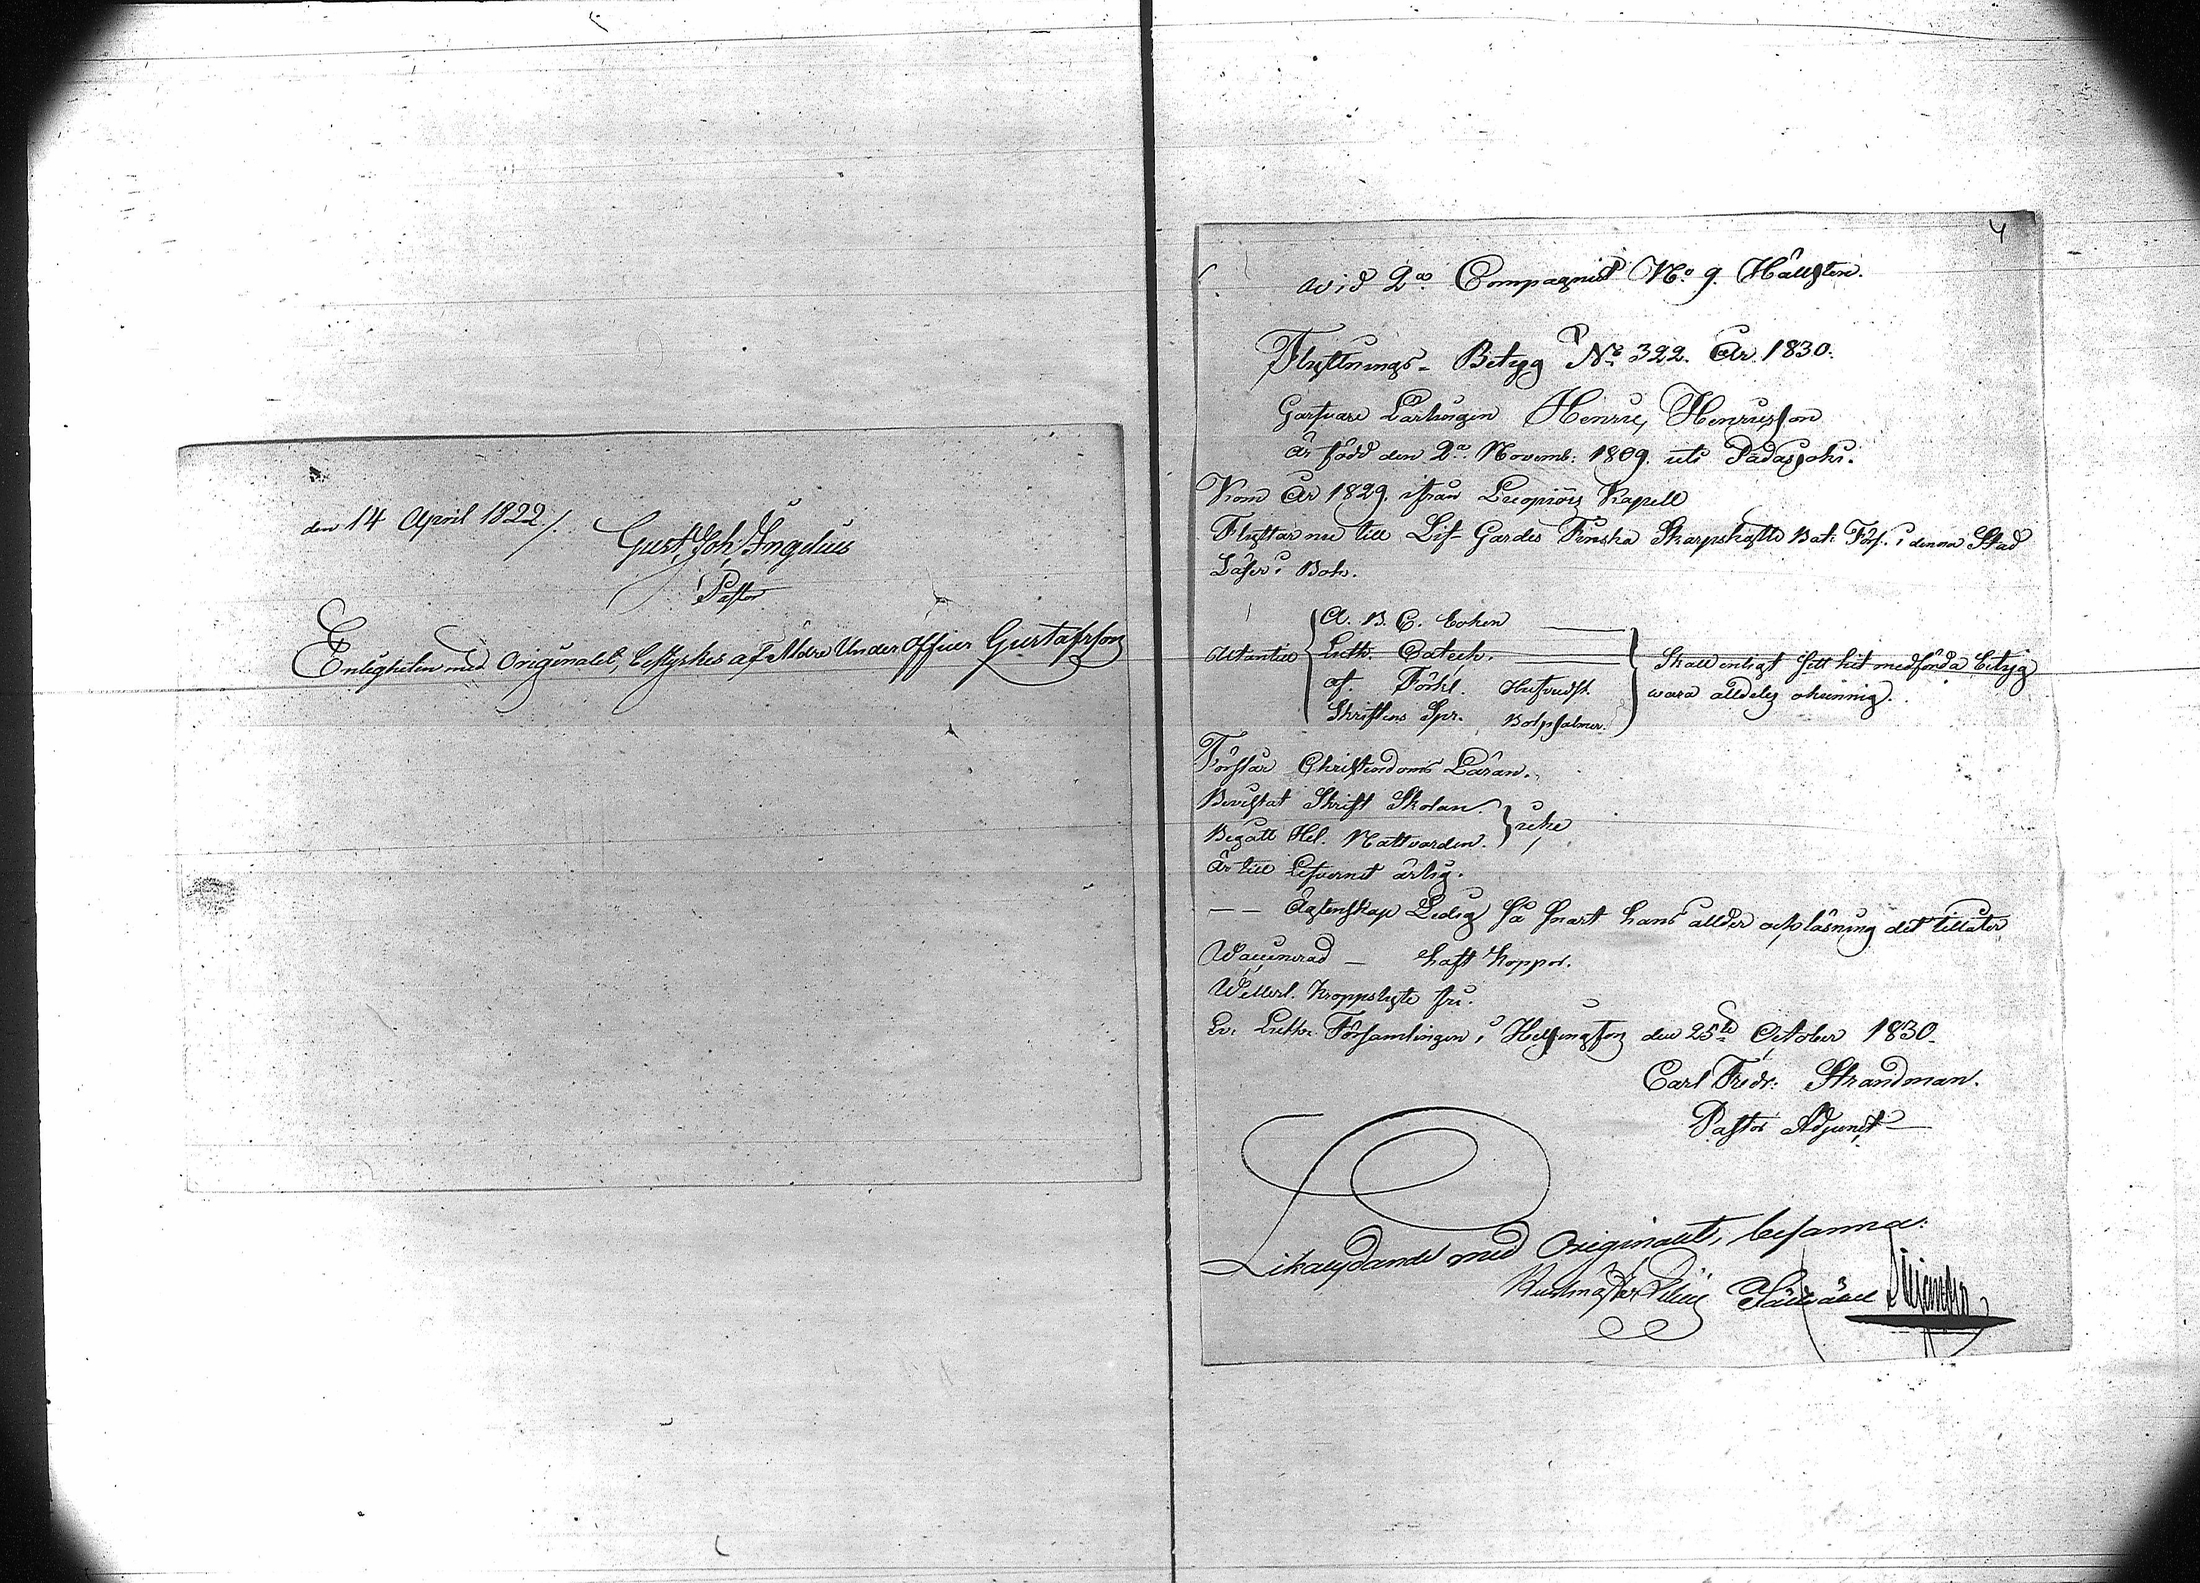 den 14 April 1822./.
Gust. Joh. Ingelius
Pastor
Enligheten med Originalet, bestyrkes af Äldre Under Officer Gustafsson
4
wid 2a Compagniet No 9. Hällsten.
Flyttnings-Betyg No 322. År 1830.
Garfvare Lärlingen Henric Henricsson
Är född den 2a Novemb: 1809. uti Padasjoki.
Kom År 1829. ifrån Kapell
Flyttar nu till Lif-Gardes Finska Skarpskytte Bat: Förs. i denna Stad
Läser i Bok.
Utantill
A. B. C. boken
Luth. Catech.
af. Förkl. Hufvudst.
Skriftens Spr. Botpsalmer.
Skall enligt sitt hit medförda betyg
wara alldeles okunnig.
Förstår Christendoms Läran.
Bevistat Skrift Skolan.
Begått Hel. Nattvarden.
icke
Är till Lefvernet ärlig.
— — Ägtenskap Ledig så snart hans ållder och läsning det tillåter
Waccinerad — haft koppor.
Wetterl. kroppslyte fri.
Ev: Luth: Församlingen i Helsingfors den 25te October 1830.
Carl Fredr: Strandman.
Pastor Adjunct
Likalydande med Originalet, befanna:
Rustmästar